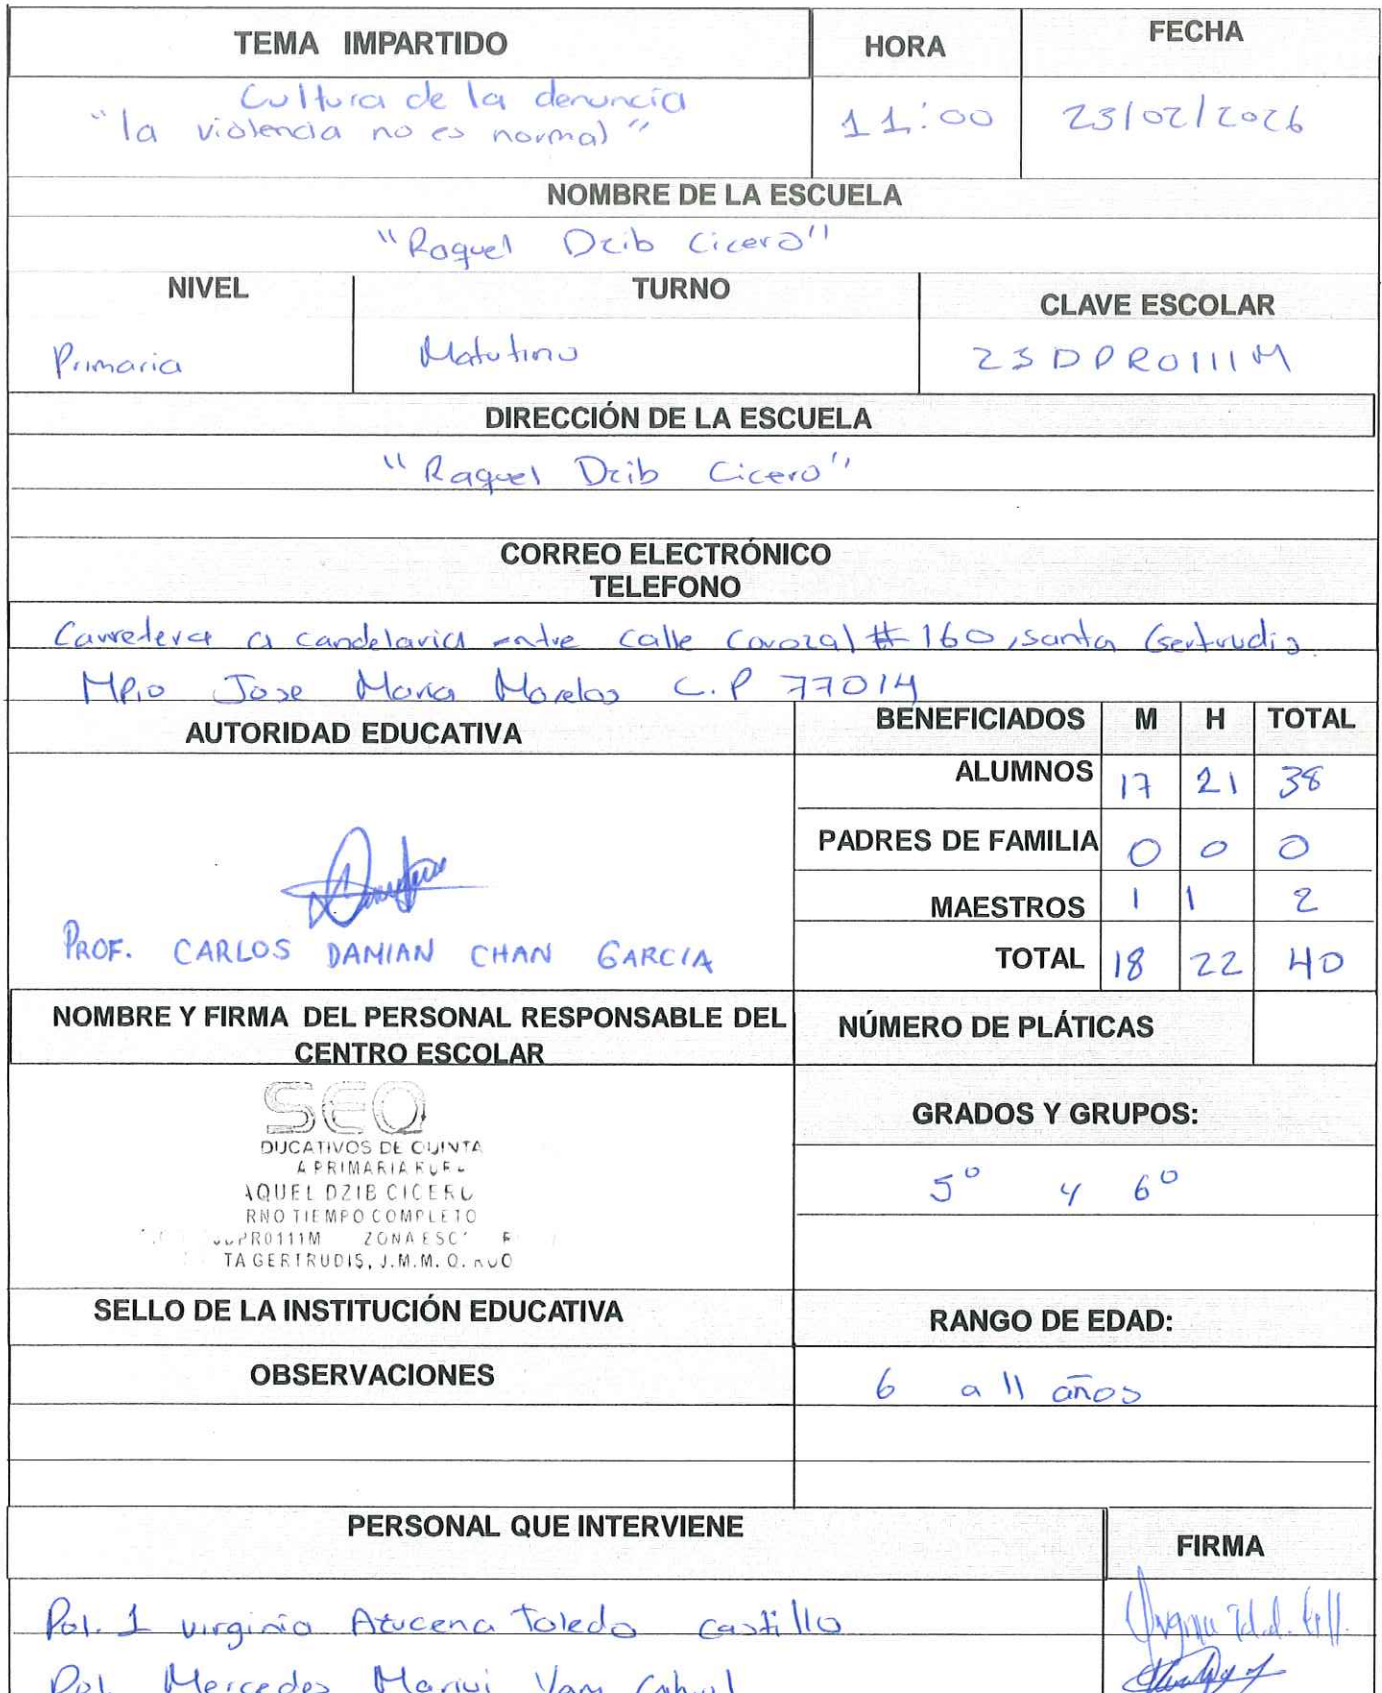 TEMA IMPARTIDO HORA FECHA
Cultura de la denuncia
"la violencia no es normal" 11:00 23/02/2026
NOMBRE DE LA ESCUELA
"Raquel Dzib Cicero"
NIVEL TURNO CLAVE ESCOLAR
Primaria Matutino 23DPR0111M
DIRECCIÓN DE LA ESCUELA
"Raquel Dzib Cicero"
CORREO ELECTRÓNICO
TELEFONO
Carretera a candelaria entre calle Corozal # 160, santa Gertrudis.
MPio Jose Maria Morelos C.P 77014
AUTORIDAD EDUCATIVA BENEFICIADOS M H TOTAL
ALUMNOS 17 21 38
PADRES DE FAMILIA 0 0 0
MAESTROS 1 1 2
PROF. CARLOS DAMIAN CHAN GARCIA TOTAL 18 22 40
NOMBRE Y FIRMA DEL PERSONAL RESPONSABLE DEL CENTRO ESCOLAR NÚMERO DE PLÁTICAS
SEQ
DUCATIVOS DE QUINTA
A PRIMARIA RUR
AQUEL DZIB CICERO
RNO TIEMPO COMPLETO
PR0111M ZONA ESC
TA GERTRUDIS, J.M.M. Q. ROO
GRADOS Y GRUPOS:
5° y 6°
SELLO DE LA INSTITUCIÓN EDUCATIVA RANGO DE EDAD:
OBSERVACIONES 6 a 11 años
PERSONAL QUE INTERVIENE FIRMA
Pol. 1 virginia Azucena Toledo Castillo
Pol. Mercedes Marivi Yam